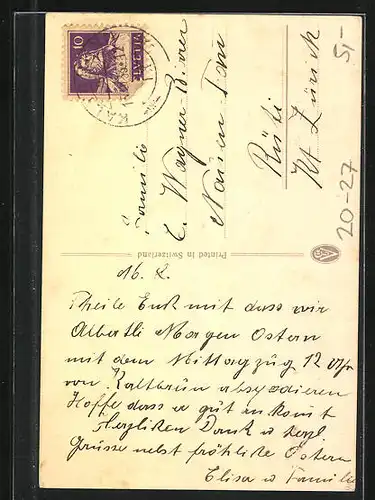 Familie
E. Wagner-B
Rüti
Kt Zürich
Printed in Switzerland
10
HELVETIA
KAL
20-27
5/-
M. L.
Theile Euch mit dass wir
Albertli Morgen Ostern
mit dem Mittagzug 12 Uhr
von Kaltbrun abspedieren
Hoffe dass er gut ankomt
Herzlichen Dank u herzl.
Grüsse nebst fröhliche Ostern
Elisa u Familie